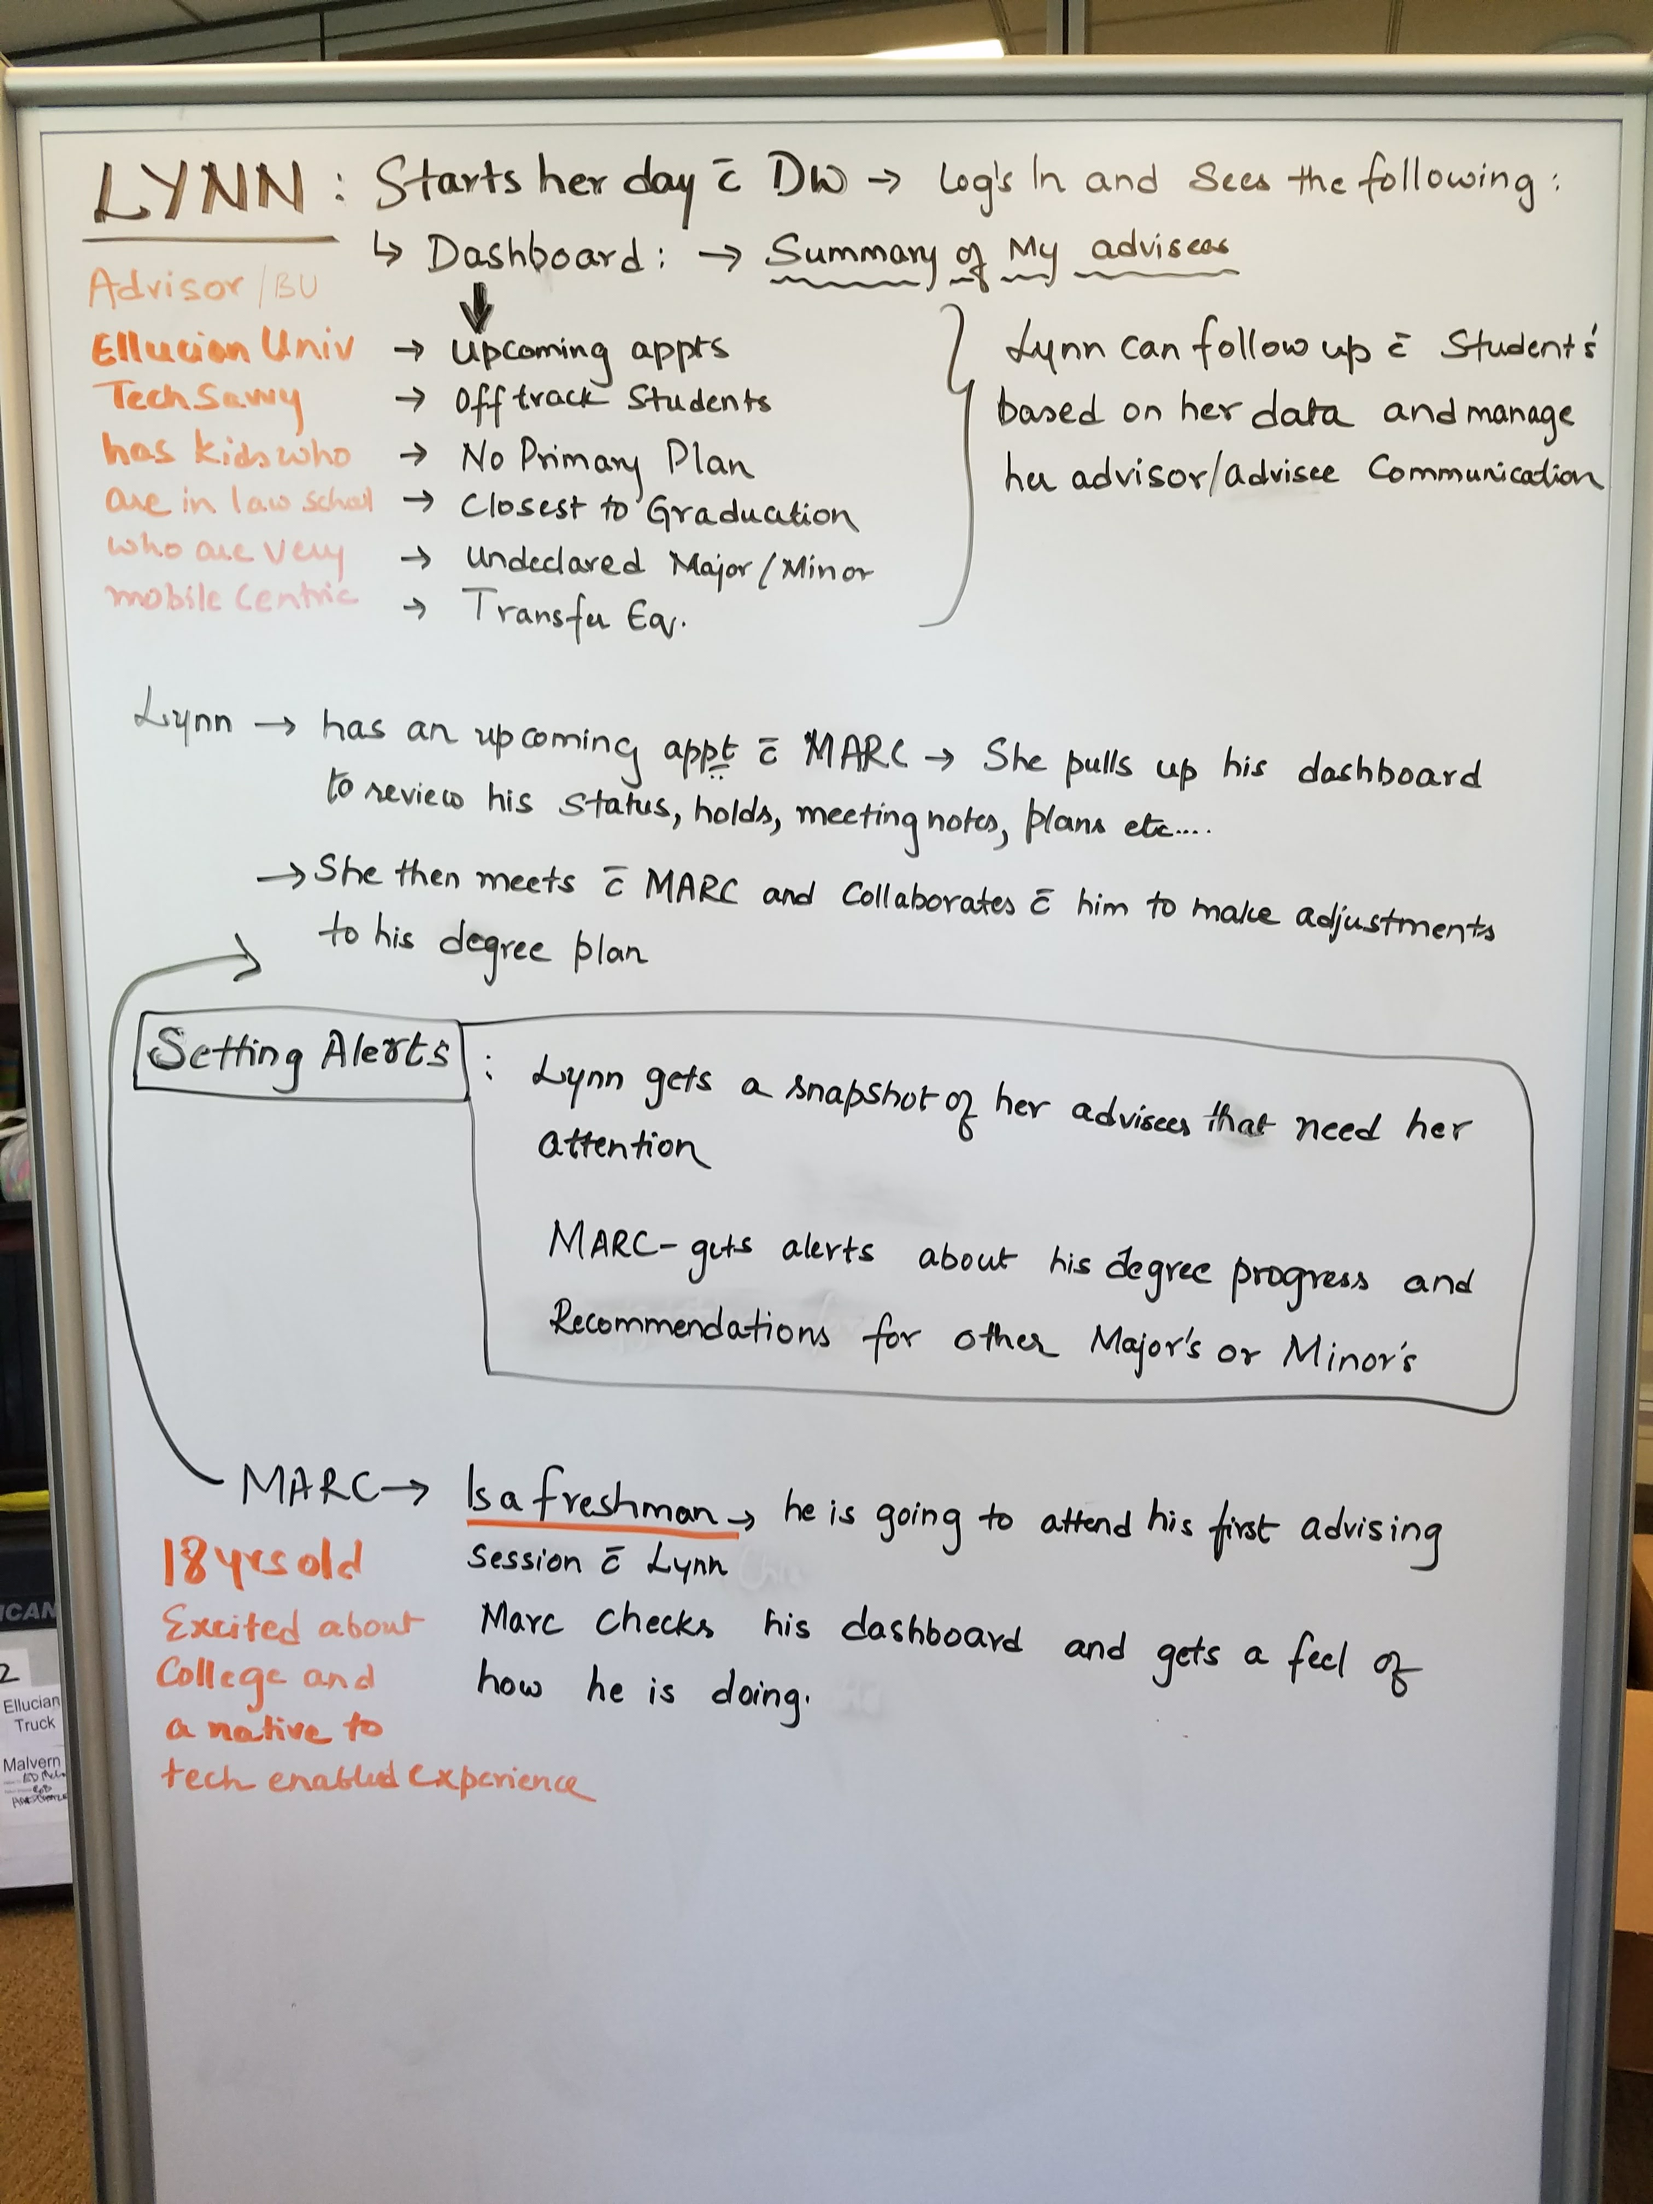 LYNN : Starts her day c̄ DW → Log's In and Sees the following :
↳ Dashboard : → Summary of My advisees
Advisor/BU
Ellucian Univ
Tech Savvy
has kids who
are in law school
who are very
mobile centric
→ Upcoming appts
→ Off track Students
→ No Primary Plan
→ Closest to Graduation
→ Undeclared Major/Minor
→ Transfer Eq.
Lynn can follow up c̄ Student's
based on her data and manage
her advisor/advisee Communication
Lynn → has an upcoming appt c̄ MARC → She pulls up his dashboard
to review his Status, holds, meeting notes, plans etc....
→ She then meets c̄ MARC and Collaborates c̄ him to make adjustments
to his degree plan
Setting Alerts : Lynn gets a snapshot of her advisees that need her
attention
MARC- gets alerts about his degree progress and
Recommendations for other Major's or Minor's
MARC → Is a freshman → he is going to attend his first advising
Session c̄ Lynn
Marc Checks his dashboard and gets a feel of
how he is doing.
18 yrs old
Excited about
College and
a native to
tech enabled experience
ICAN
2
Ellucian
Truck
Malvern